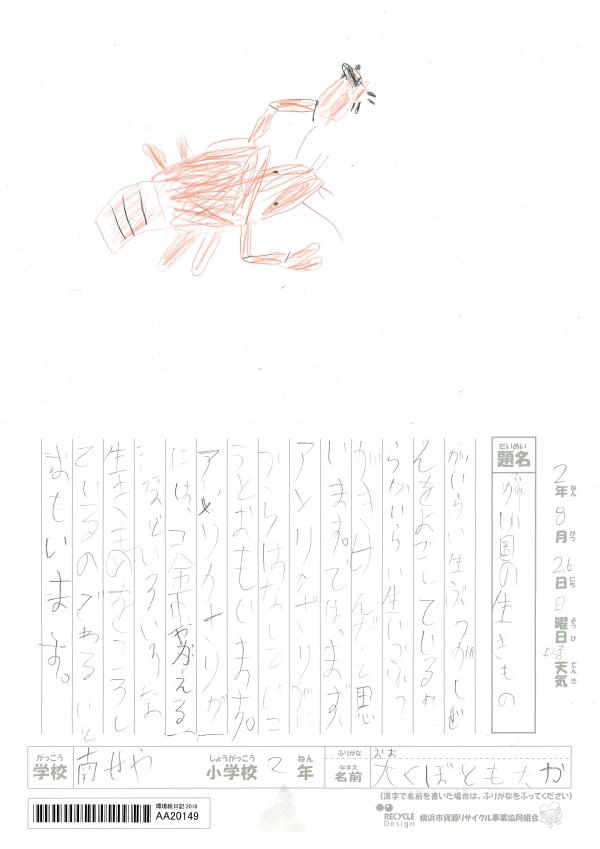 2年 8月 26日 日曜日
天気
ねん がつ にち ようび てんき
だいめい
題名
がい国の生きもの
がいらい生ぶつがしぜ
んをよごしているが
らがいらい生ぶつ
がきけんだと思
います。では、まず
アメリカザリガニ
からはなしていこ
うとおもいます。
アメリカザリガ
には、
などいろいろな
生きものをころし
ているのでわるいと
おもいます。
がっこう
学校
南せや
しょうがっこう
小学校
2
ねん
年
ふりがな
おお
なまえ
名前
大くぼともたか
(漢字で名前を書いた場合は、ふりがなをふってください)
環境絵日記 2018
AA20149
RECYCLE Design
横浜市資源リサイクル事業協同組合